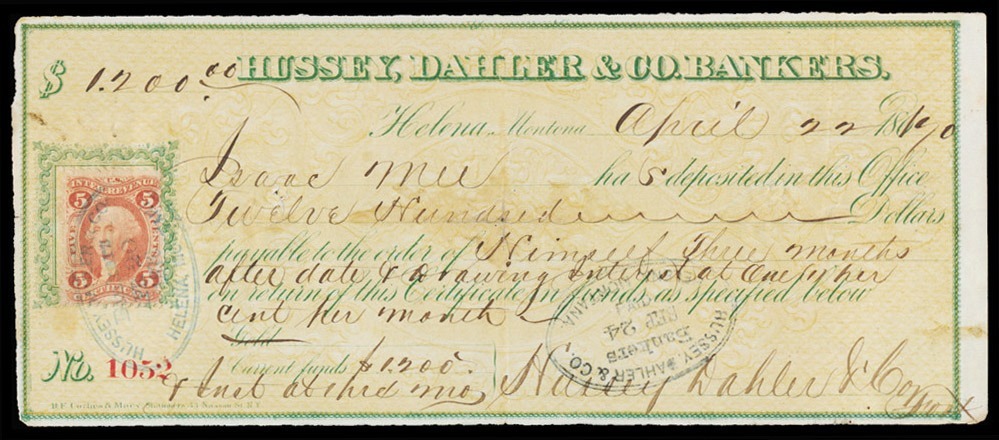 $ 1.200.00 HUSSEY, DAHLER & CO. BANKERS.
Helena, Montana April 22 1870
Isaac Mee has deposited in this Office
Twelve Hundred Dollars
payable to the order of Himself Three months
after date & drawing interest at one per
on return of this Certificate in funds as specified below
cent per month
Gold
Current funds $1.200.
& Inst at 3rd mo
Hussey Dahler & Co
No. 1052
INTER. REVENUE
5 5
5 5
FIVE CENTS
CERTIFICATE
HUSSEY
HELENA
HUSSEY, DAHLER & CO.
Bankers
SEP 24
PAID